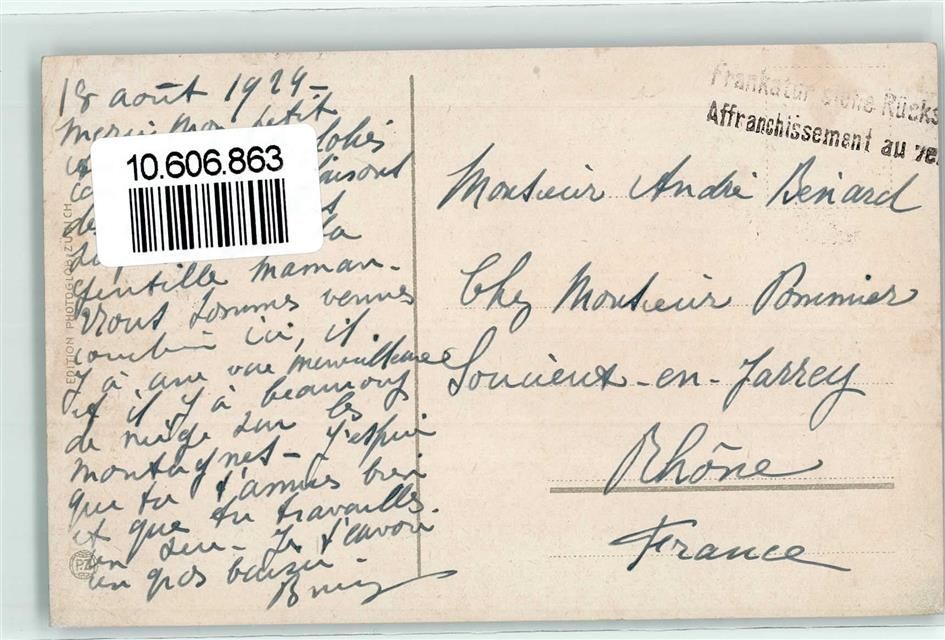 18 août 1924 -
merci mon petit
jolies
de
la
gentille maman -
nous sommes venues
coucher ici, il
y à une vue merveilleuse
et il y à beaucoup
de neige sur les
montagnes - J'espère
que tu t'amuses bien
et que tu travailles
un peu - Je t'envoie
un gros baiser
10.606.863
EDITION PHOTOGLOB ZÜRICH
PZ
Frankatur siehe Rücks
Affranchissement au ve
Monsieur André Benard
Chez Monsieur Pommier
Soucieux-en-Jarrey
Rhône
France